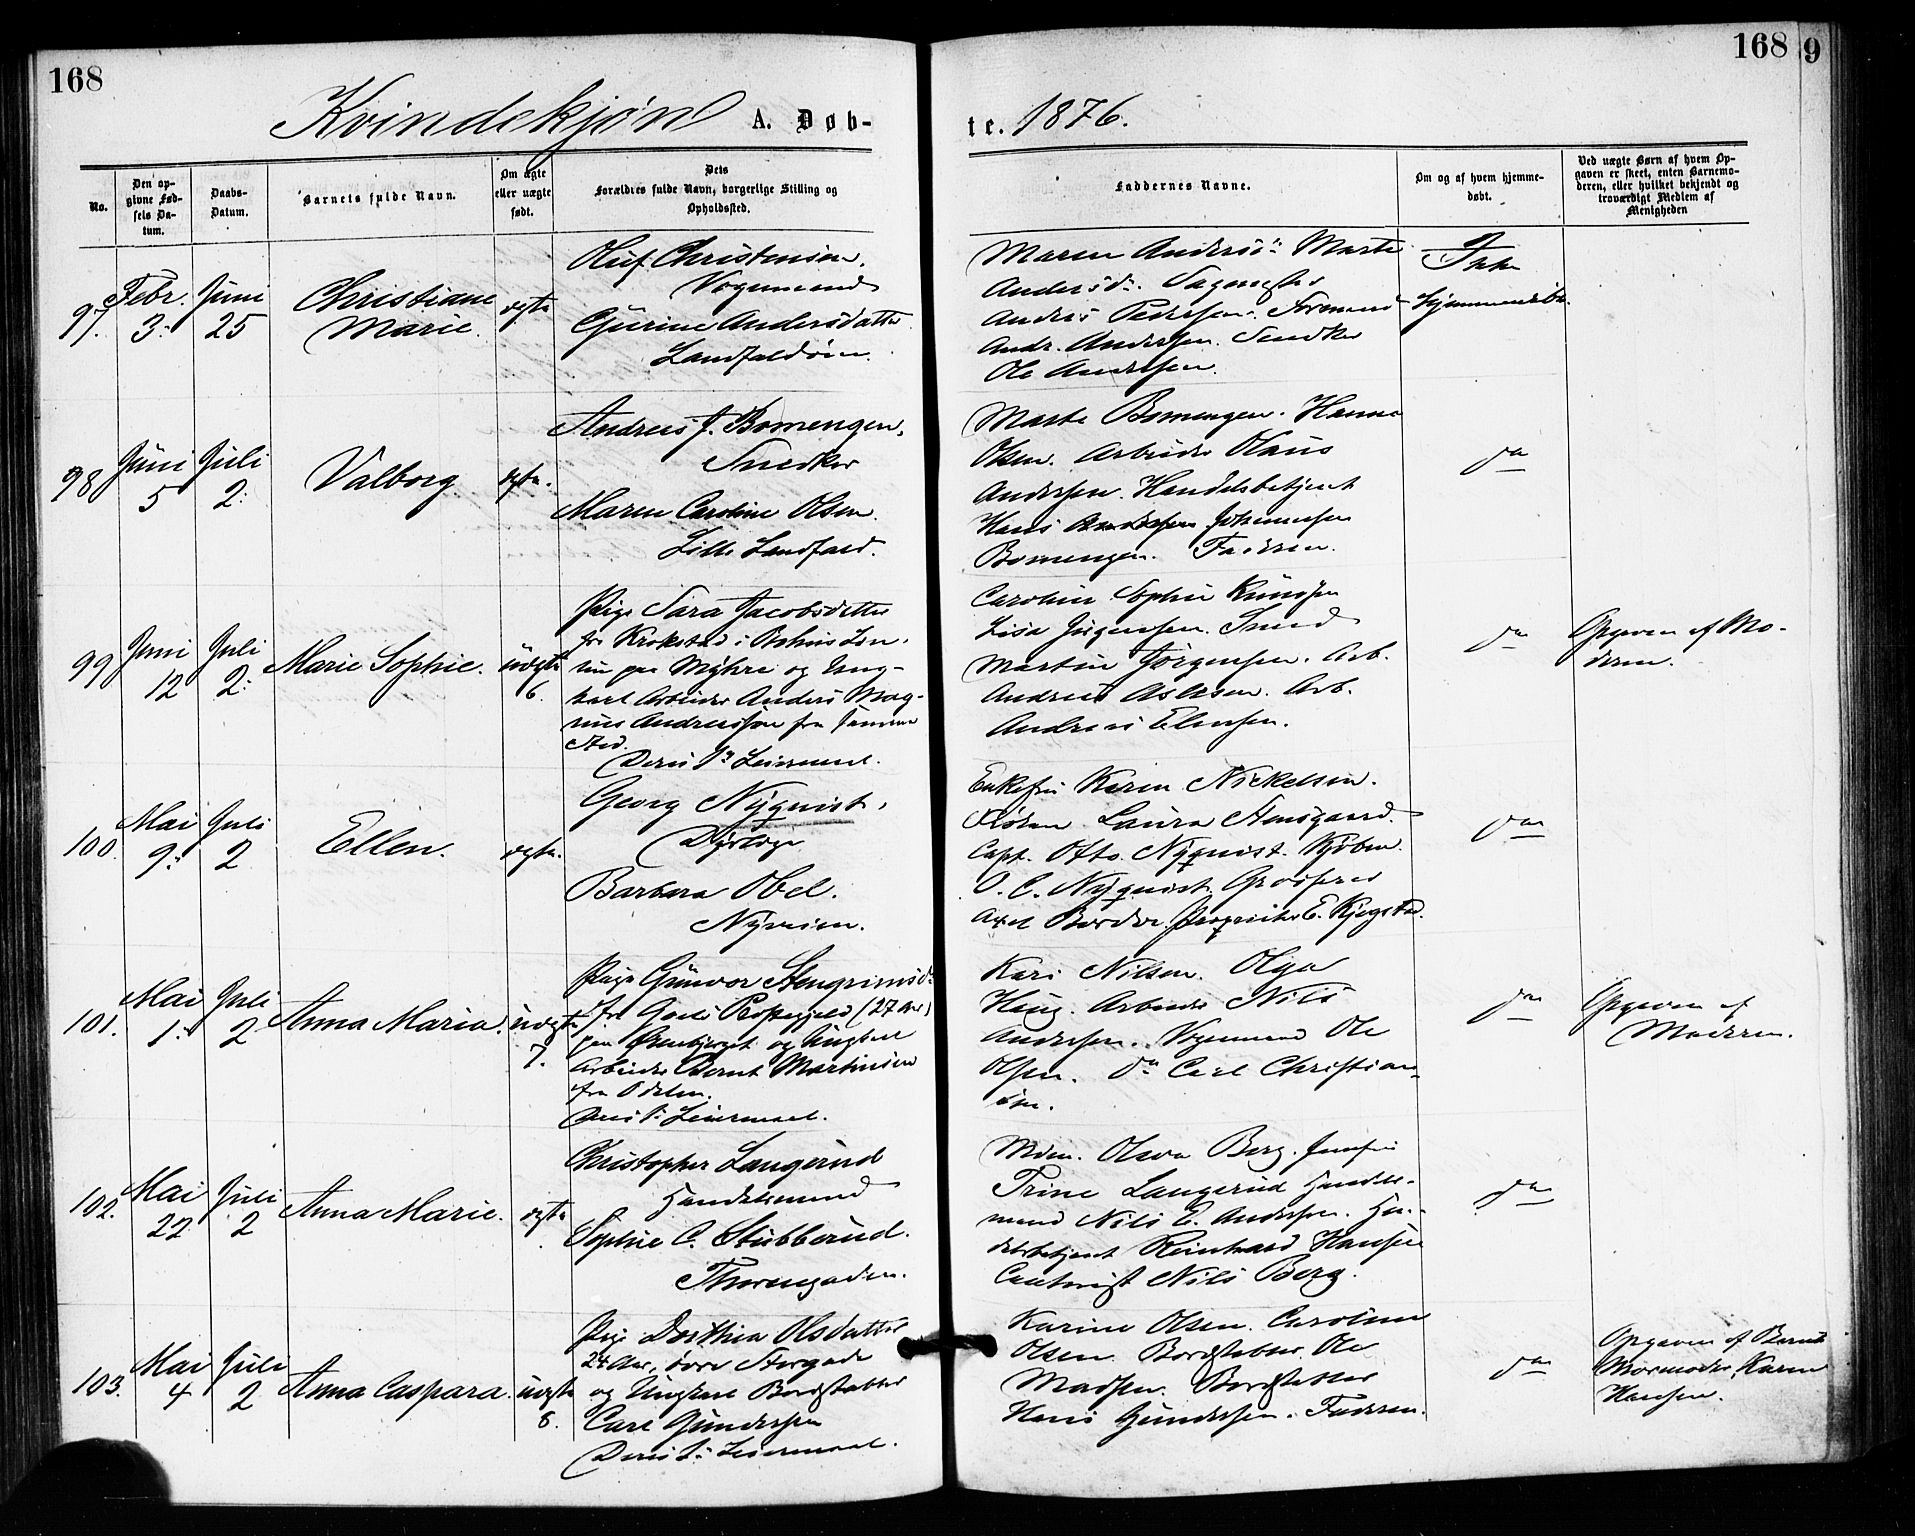 168
168
9
Kvindekjøn A. Døb-
te. 1876.
No.
Den op-
givne Fød-
sels Da-
tum.
Daabs-
Datum.
Barnets fulde Navn.
Om ægte
eller uægte
født.
Dets
Forældres fulde Navn, borgerlige Stilling og
Opholdssted.
Faddernes Navne.
Om og af hvem hjemme-
døbt.
Ved uægte Børn af hvem Op-
gaven er skeet, enten Barnemo-
deren, eller hvilket bekjendt og
troværdigt Medlem af
Menigheden
97.
Febr.
3.
Juni
25
Christiane
Marie.
ægte
Oluf Christensen.
Vognmand
Gurine Andersdatter
Landfaldøien.
Maren Andersd: Marte
Andersd:
Anders Pedersen. Formand
Andr. Andersen. Snedker
Ole Andersen.
Ikke
hjemmedøbt.
98
Juni
5
Juli
2.
Valborg
ægte.
Andreas J. Bomengen.
Snedker
Maren Caroline Olsen.
Lille Landfald.
Marte Bomengen. Hanna
Olsen. Arbeider Olaus
Andersen. Handelsbetjent
Hans Johannesen
Bomengen. Faderen.
do
99
Juni
12
Juli
2.
Marie Sophie.
uægte
6.
Pige Sara Jacobsdatter
fra Krokstad i Bohus Len.
nu paa Myhre og Ung-
karl Arbeider Anders Mag-
nus Andreasson fra samme
Sted.
Deres 1ste Leiermaal.
Caroline Sophie Knudsen
Lisa Jørgensen. Smed
Martin Jørgensen. Arb.
Andreas Aslesen. Arb.
Andreas Ellefsen.
do
Opgaven af Mo-
deren.
100.
Mai
9.
Juli
2
Ellen.
ægte.
Georg Nyquist.
Dyrlæge
Barbara Obel.
Nyveien.
Enkefru Karen Nickelsen.
Frøken Laura Stensgaard.
Capt. Otto Nyquist. Kjøbm.
O. C. Nyquist. Grosserer
Axel Proprietær E. Kjegstad.
do
101.
Mai
1.
Juli
2
Anna Maria.
uægte
7.
Pige Gunvor Stengrimsd:
fra Gols Præstegjeld (27 Aar)
paa Ørenbjerget og Ungkarl
Arbeider Bernt Martinsen
fra Odalen.
Deres 1ste Leiermaal.
Kari Nilsen. Olga
Haug. Arbeider Nils
Andersen. Vognmand Ole
Olsen. do Carl Christian-
sen.
do
Opgaven af
Moderen.
102.
Mai
22
Juli
2
Anna Marie.
ægte
Christopher Langerud
Handelsmand
Sophie C. Stubberud.
Thornegaden.
Mdm. Olava Berg. Jomfru
Trine Langerud Handels-
mand Nils E. Andersen. Han-
delsbetjent Reinhard Hansen
Nils Berg.
do
103.
Mai
4
Juli
2
Anna Caspara.
uægte
8.
Pige Dorthea Olsdatter
24 Aar, øvre Storgade
og Ungkarl Bordstabler
Carl Gundersen
Deres 1ste Leiermaal.
Karine Olsen. Caroline
Olsen. Bordstabler Ole
Madsen. Bordstabler
Hans Gundersen. Faderen.
do
Opgaven af Barnets
Mormoder, Karen
Hansen.